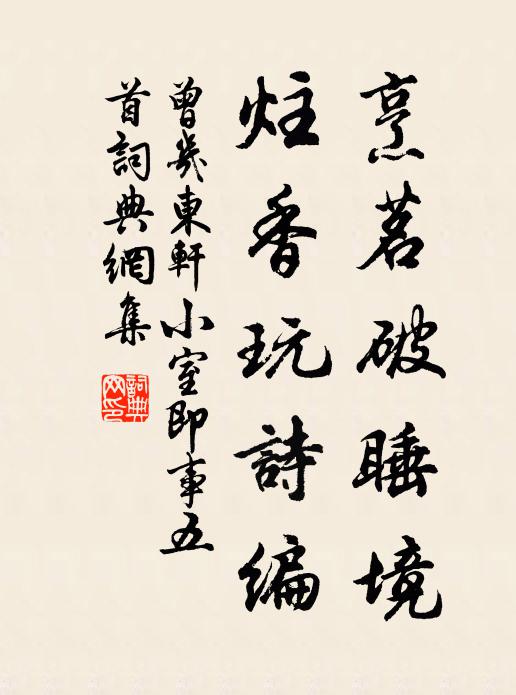 烹茗破睡境
炷香玩詩編
曾幾東軒小室即事五
首詞典網集
詞典
网印